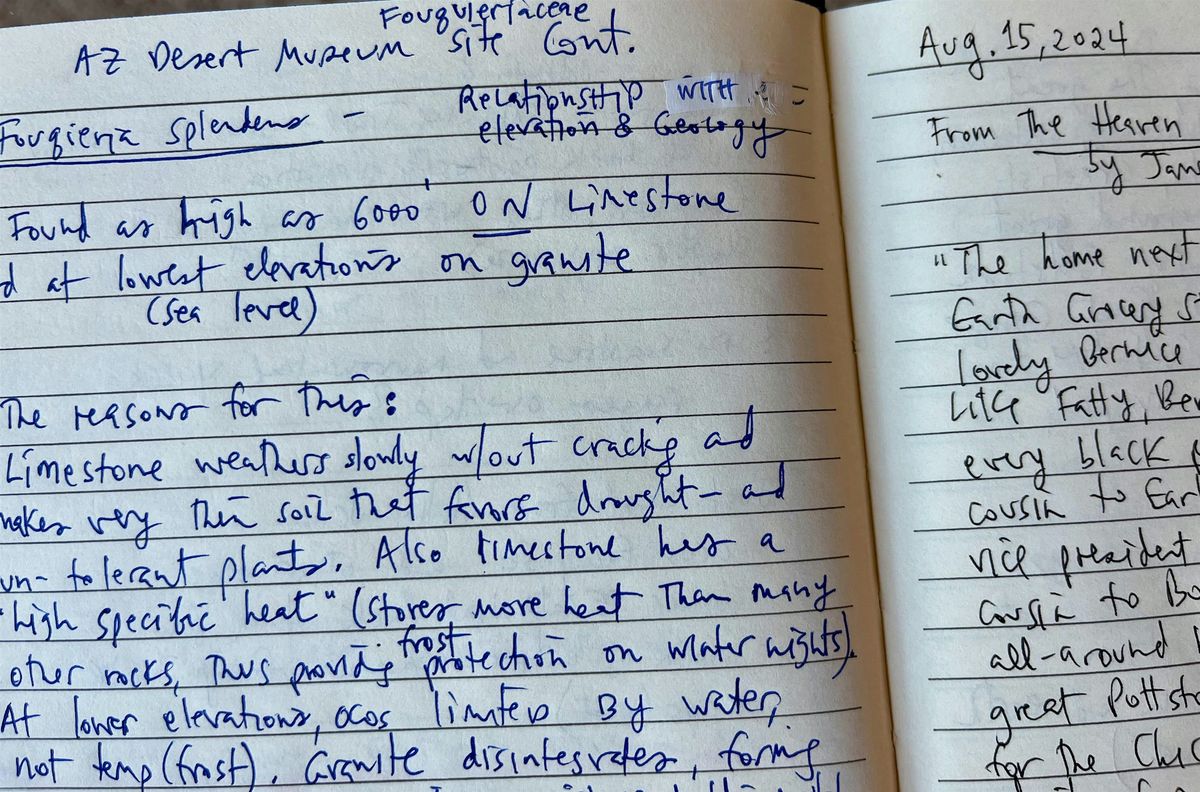 Fouquieriaceae
AZ Desert Museum Site Cont.
Fouqieria Splendens - Relationship WITH =
elevation & Geology
Found as high as 6000' ON Limestone
d at lowest elevations on granite
(sea level)
The reasons for this:
Limestone weathers slowly w/out crackig ad
makes very thin soil that favors drought- ad
un-tolerant plants. Also limestone has a
"high specific heat" (stores more heat Than many
other rocks, Thus providig frost protection on winter nights).
At lower elevations, ocos limited By water,
not temp (frost). Granite disintegrates, formig
Aug. 15, 2024
From The Heaven
by Jam
"The home next
Earth Grocery St
lovely Bernice
Like Fatty, Ber
every black p
cousin to Ear
vice president
Cousin to Bo
all-around
great Pottst
for The Clu